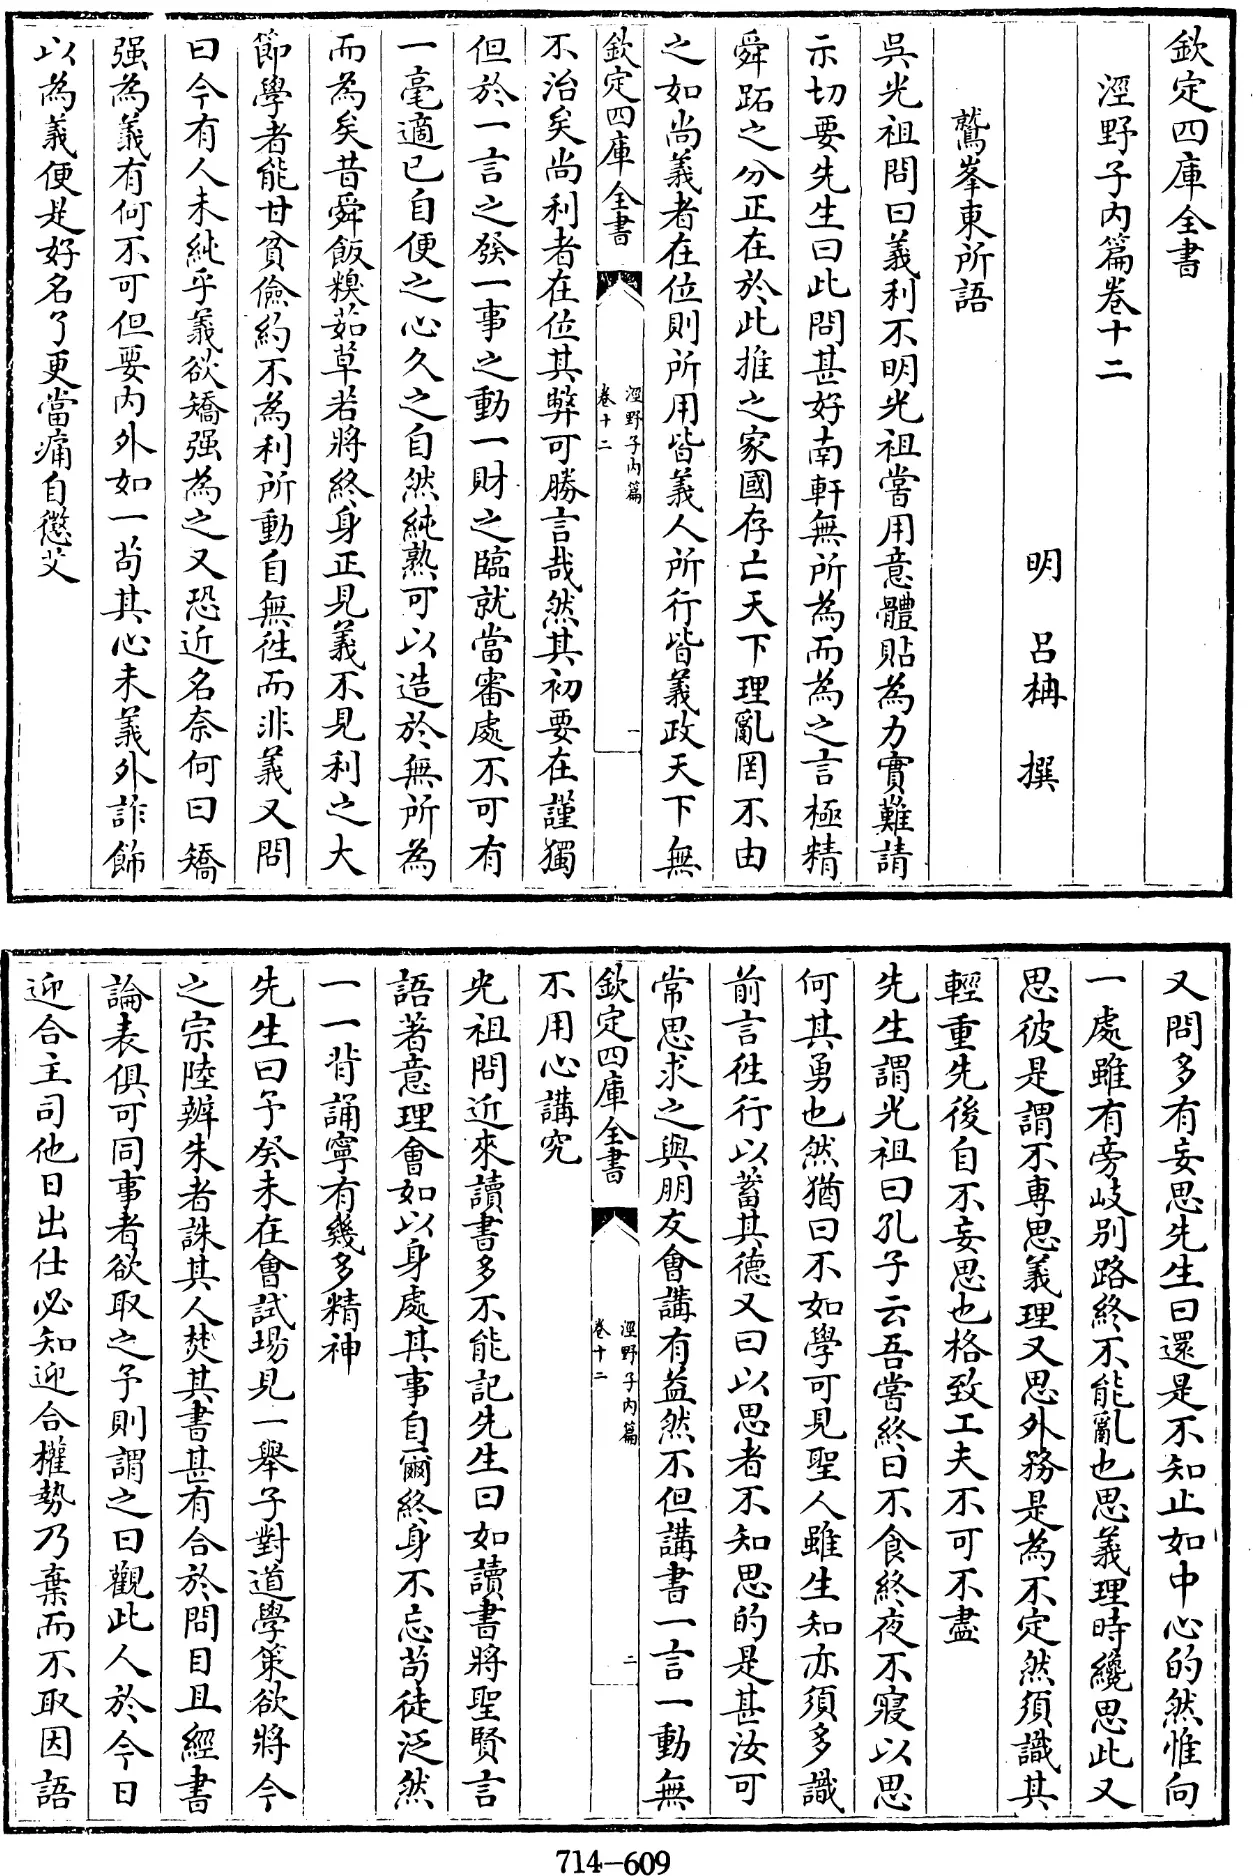 欽定四庫全書
涇野子內篇卷十二
明　吕柟　撰
鷲峯東所語
吳光祖問曰義利不明光祖嘗用意體貼為力實難請
示切要先生曰此問甚好南軒無所為而為之言極精
舜跖之分正在於此推之家國存亡天下理亂罔不由
之如尚義者在位則所用皆義人所行皆義政天下無
欽定四庫全書
涇野子內篇
卷十二
一
不治矣尚利者在位其弊可勝言哉然其初要在謹獨
但於一言之發一事之動一財之臨就當審處不可有
一毫適已自便之心久之自然純熟可以造於無所為
而為矣昔舜飯糗茹草若將終身正見義不見利之大
節學者能甘貧儉約不為利所動自無徃而非義又問
曰今有人未純乎義欲矯强為之又恐近名奈何曰矯
强為義有何不可但要內外如一苟其心未義外詐飾
以為義便是好名了更當痛自懲艾
又問多有妄思先生曰還是不知止如中心的然惟向
一處雖有旁岐別路終不能亂也思義理時纔思此又
思彼是謂不專思義理又思外務是為不定然須識其
輕重先後自不妄思也格致工夫不可不盡
先生謂光祖曰孔子云吾嘗終日不食終夜不寢以思
何其勇也然猶曰不如學可見聖人雖生知亦須多識
前言徃行以蓄其德又曰以思者不知思的是甚汝可
常思求之與朋友會講有益然不但講書一言一動無
欽定四庫全書
涇野子內篇
卷十二
二
不用心講究
光祖問近來讀書多不能記先生曰如讀書將聖賢言
語著意理會如以身處其事自爾終身不忘苟徒泛然
一一背誦寧有幾多精神
先生曰予癸未在會試塲見一舉子對道學策欲將今
之宗陸辨朱者誅其人焚其書甚有合於問目且經書
論表俱可同事者欲取之予則謂之曰觀此人於今日
迎合主司他日出仕必知迎合權勢乃棄而不取因語
714—609